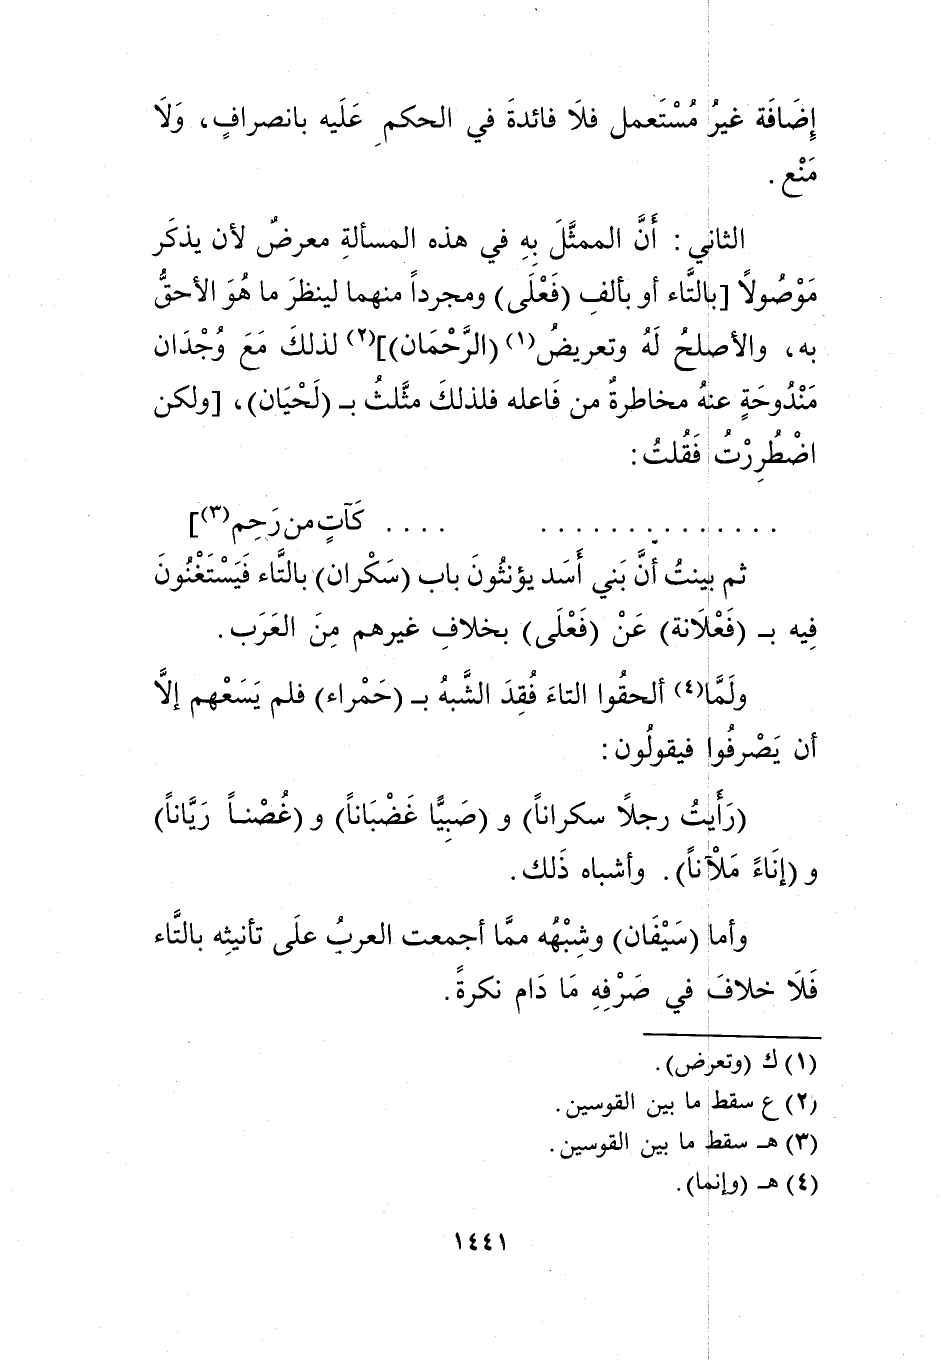 إِضَافَة غيرُ مُسْتَعمل فلَا فائدةَ في الحكمِ عَلَيه بانصرافٍ، وَلَا
مَنْع.
الثاني: أَنَّ الممثَّلَ بِهِ في هذه المسألةِ معرضٌ لأن يذكَر
مَوْصُولاً [بالتَّاء أو بألفِ (فَعْلَى) ومجرداً منهما لينظرَ ما هُوَ الأحقُّ
به، والأصلحُ لَهُ وتعريضُ(١) (الرَّحْمَان)](٢) لذلكَ مَعَ وُجْدَان
مَنْدُوحَةٍ عنهُ مخاطرةٌ من فَاعله فلذلكَ مثَّلثُ بـ (لَحْيَان)، [ولكن
اضْطُرِرْتُ فَقُلتُ:
. . . . . . . . . . . . . . . . . . كَآتٍ من رَحِم(٣)]
ثم بينتُ أنَّ بَني أَسَد يؤنثُونَ باب (سَكْران) بالتَّاء فَيَسْتَغْنُونَ
فِيه بـ (فَعْلَانة) عَنْ (فَعْلَى) بخلافِ غيرهم مِنَ العَرَب.
ولَمَّا(٤) ألحقُوا التاءَ فُقِدَ الشَّبهُ بـ (حَمْراء) فلم يَسَعْهم إلَّا
أن يَصْرفُوا فيقولُون:
(رَأَيتُ رجلًا سكراناً) و (صَبِيًّا غَضْبَاناً) و (غُصْنـاً رَيَّاناً)
و (إنَاءً مَلْآناً). وأشباه ذَلك.
وأما (سَيْفَان) وشِبْهُه ممَّا أجمعت العربُ علَى تأنيثِه بالتَّاء
فَلَا خلافَ في صَرْفِهِ مَا دَام نكرةً.
(١) ك (وتعرض).
(٢) ع سقط ما بين القوسين.
(٣) هـ سقط ما بين القوسين.
(٤) هـ (وإنما).
١٤٤١